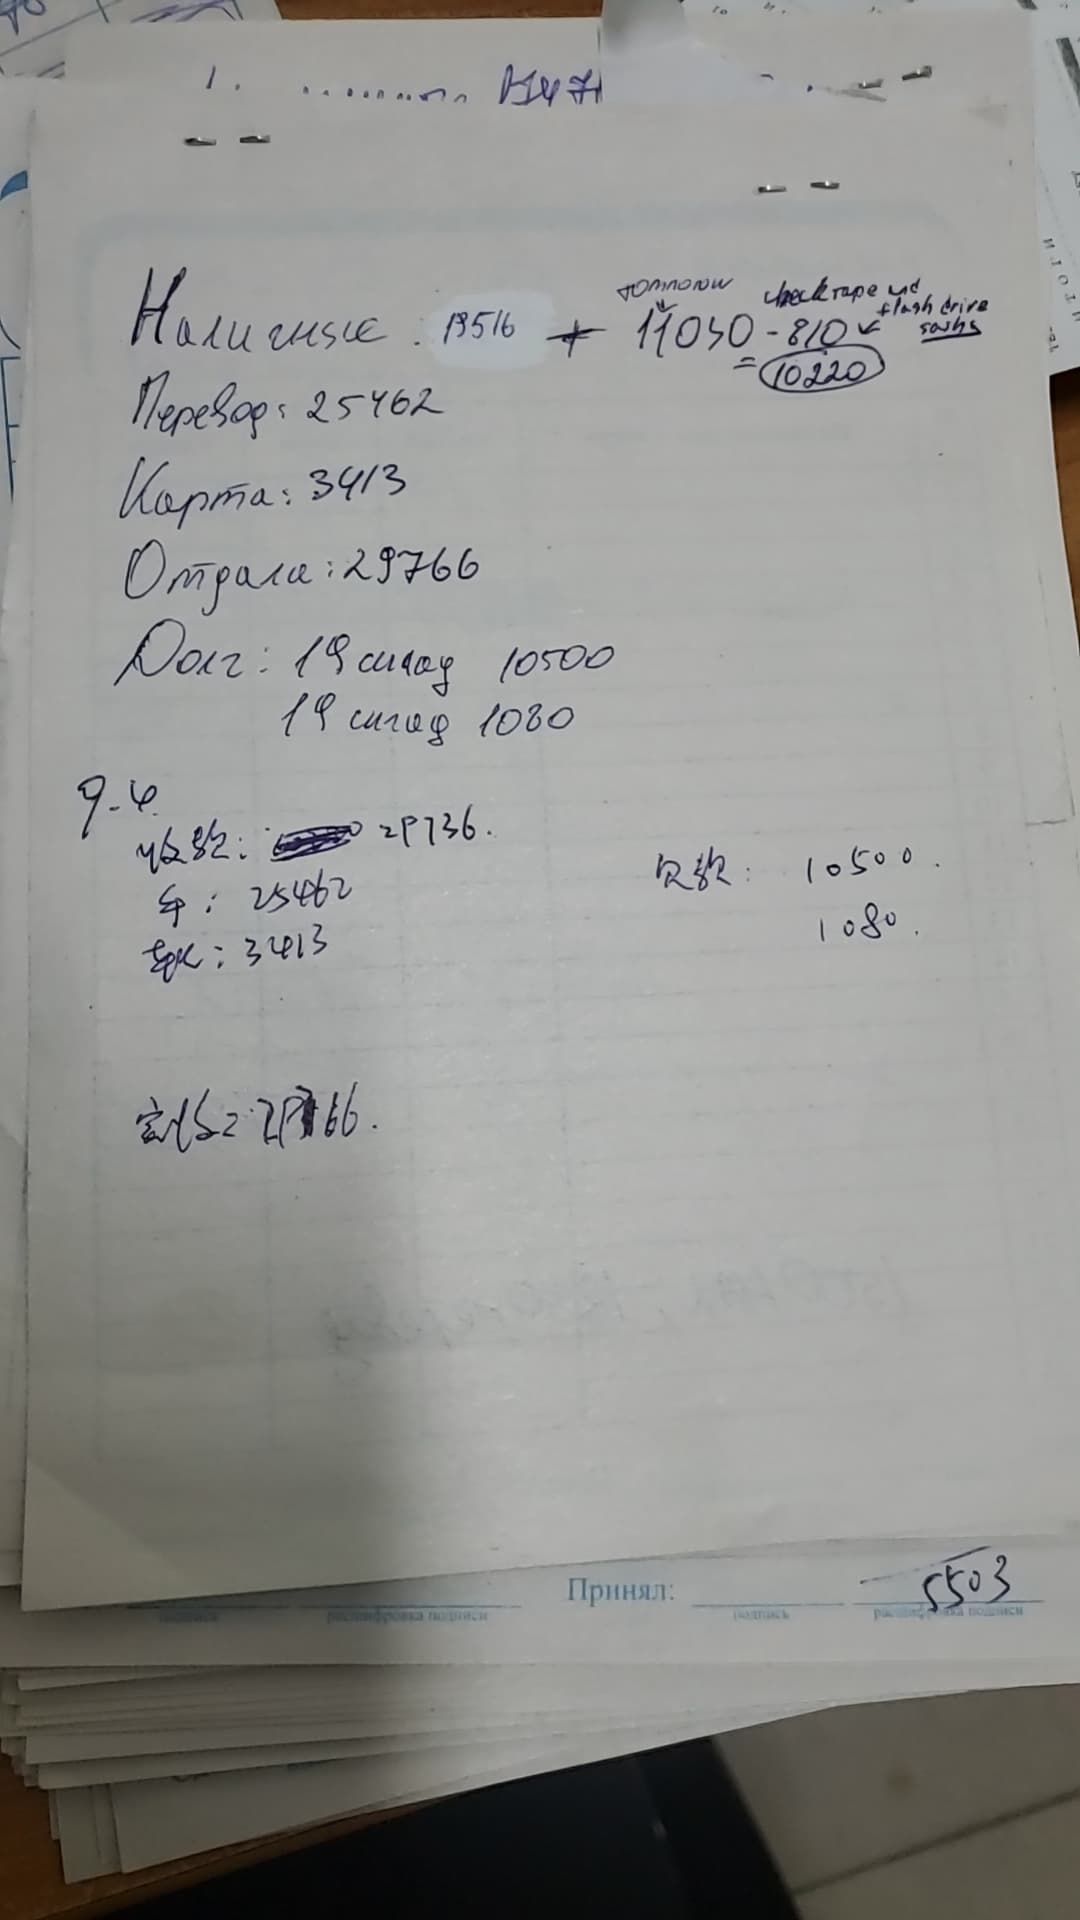 Наличные: 19516 + 11030 - 810 check tape and flash drive sasha
= 10220
Перевод: 25462
Карта: 3413
Отдала: 29766
Долг: 19 склад 10500
19 склад 1080
9-4.
收款: 29736.
卡: 25462
3413
欠款: 10500.
1080.
Принял:
5503
подпись расшифровка подписи подпись расшифровка подписи